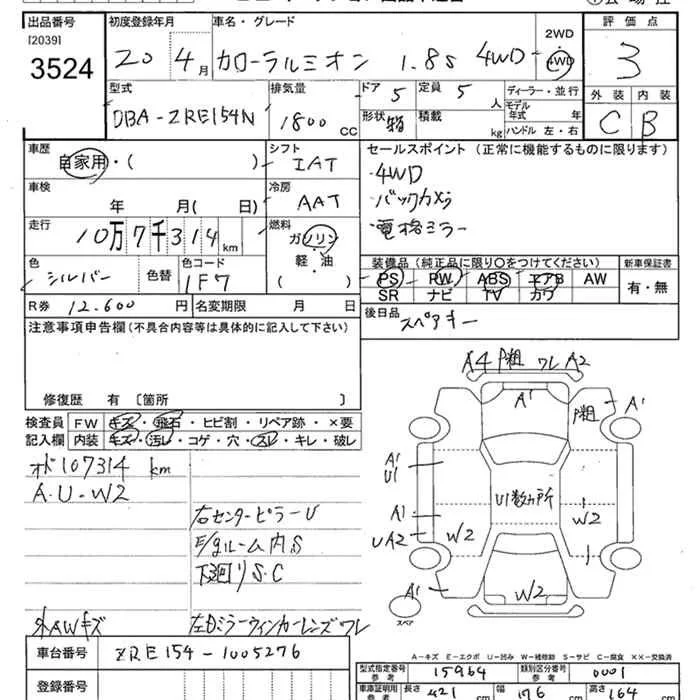 出品番号 初度登録年月 車名・グレード 2WD 評価点
[2039]
3524 20年 4月 カローラルミオン 1.8S 4WD 4WD 3
型式 排気量 ドア 5 定員 5人 ディーラー・並行 外装 内装
DBA-ZRE154N 1800cc 形状 箱 積載 kg モデル年式 年 ハンドル 左・右 C B
車歴 シフト セールスポイント (正常に機能するものに限ります)
自家用・( ) IAT ・4WD
車検 冷房 ・バックカメラ
年 月(日) AAT ・電格ミラー
走行 燃料
10万7千314km ガソリン・軽・油
色 色替 色コード 装備品 (純正品に限り○をつけてください) 新車保証書
シルバー 1F7 PS PW ABS エアB AW 有・無
SR ナビ TV カワ
R券 12.600円 名変期限 月 日 後日品
スペアキー
注意事項申告欄(不具合内容等は具体的に記入して下さい)
修復歴 有 〔箇所 〕
検査員 FW キズ・飛石・ヒビ割・リペア跡・×要
記入欄 内装 キズ・汚レ・コゲ・穴・スレ・キレ・破レ
オド107314 km
A.U-W2
右センターピラーU
E/gルーム内S
下廻りS.C
外AWキズ 左Dミラーウィンカーレンズワレ
A4 P粗 ワレ A2
A1 P粗 A1
A1
U1
U1数ヵ所
A1 W2 W2
UA2
A1 W2
スペア
A-キズ E-エクボ U-凹み W-補修跡 S-サビ C-腐食 XX-交換済
車台番号 ZRE154-1005276
型式指定番号 参考 15964 類別区分番号 参考 0001
登録番号 車庫証明用 参考 長さ 421 cm 幅 176 cm 高さ 164 cm